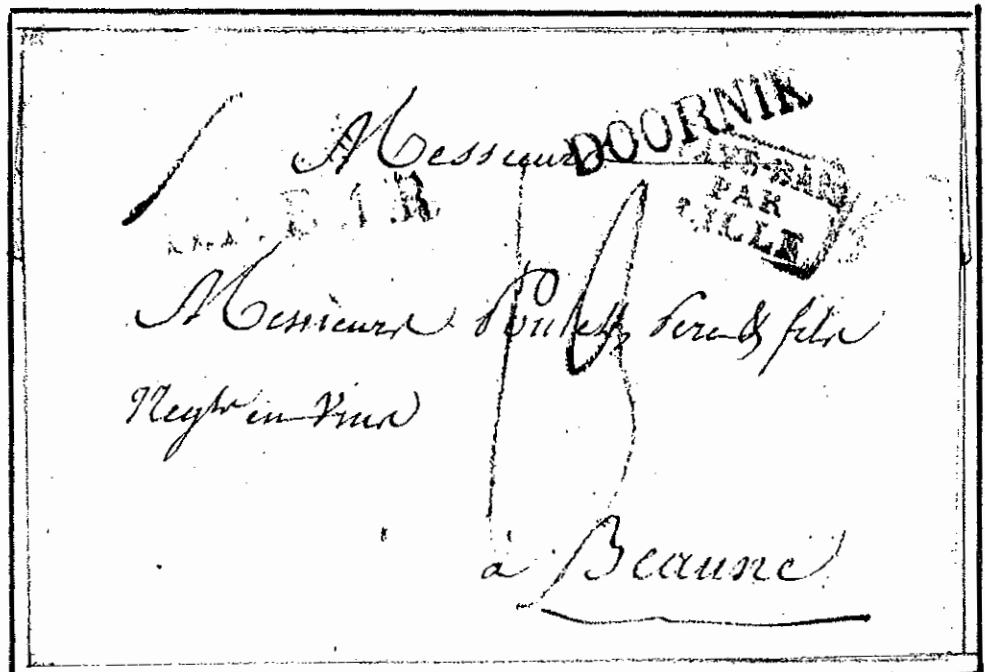 Messieurs
DOORNIK
PAYS-BAS
PAR
LILLE
L.P.B.1.R.
Messieurs Poulet Pere & fils
Negts en Vins
à Beaune